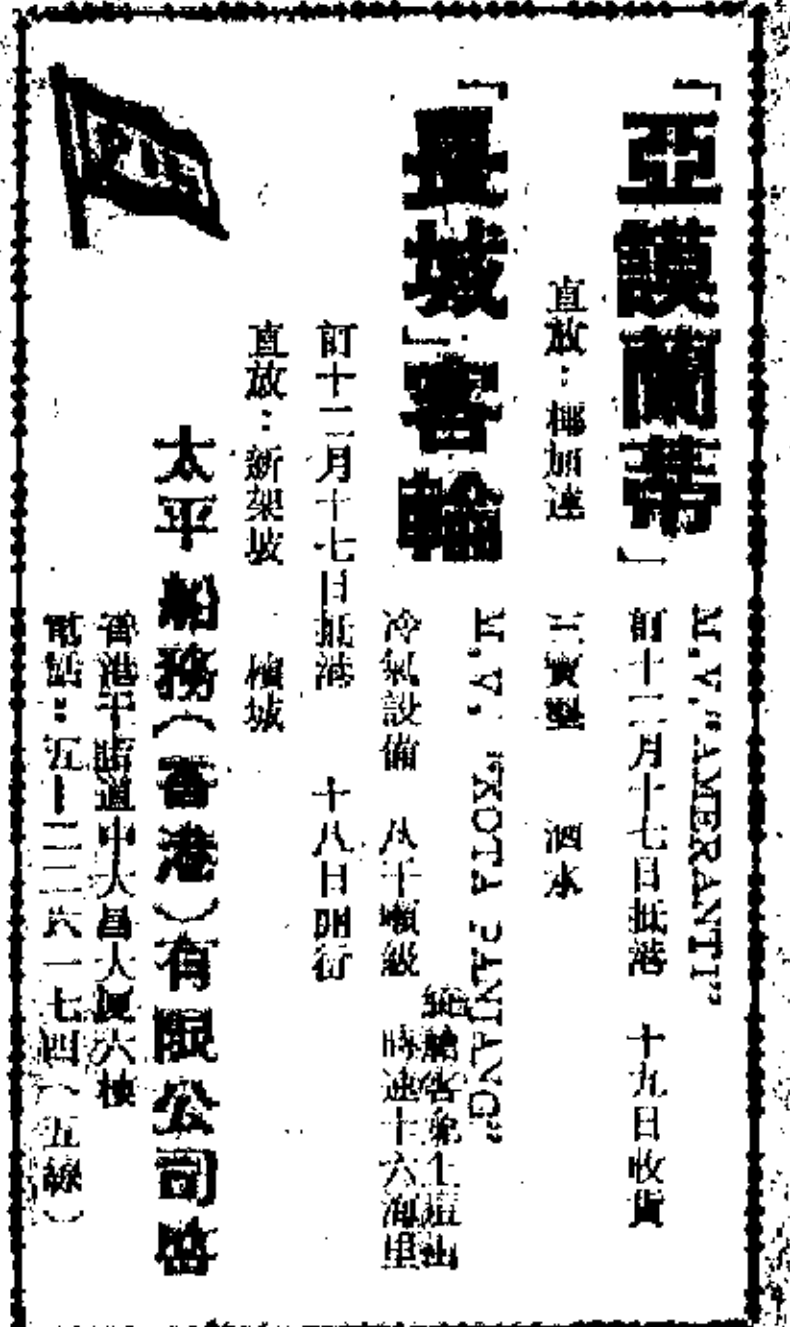 「亞謨蘭蒂」
M.V."AMERANTI"
訂十二月十七日抵港 十九日收貨
直放：椰加達 三寶壟 泗水
「長城」客輪
M.V. "KOTA PANJANG"
冷氣設備 八千噸級 時速十六海里
訂十二月十七日抵港 十八日開行
直放：新架坡 檳城
太平船務（香港）有限公司啓
香港干諾道中大昌大廈六樓
電話：五－二二六一七四（五線）